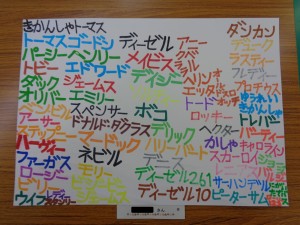 きかんしゃトーマス
トーマスゴードン
パーシーヘンリー
トビー エドワード
ダック ジェームス
オリバー エミリー
スペンサー
アーサー
ドナルド、ダグラス
ステップニー
マードック
ハーヴィー
ファーガス
ネビル
ロージー
モリー
ビリー
ウィフ
ディーゼル
メイビス
デイジー
ボコ
デリック
ハリーバート
デニス
ディーゼル261
ディーゼル10
アニー
トード
ロッキー
ヘクター
ダンカン
デューク
ラスティー
フレディー
プロテウス
トレバー
バーティー
キャロライン
スカーロイ
サーハンデル
ピーターサム